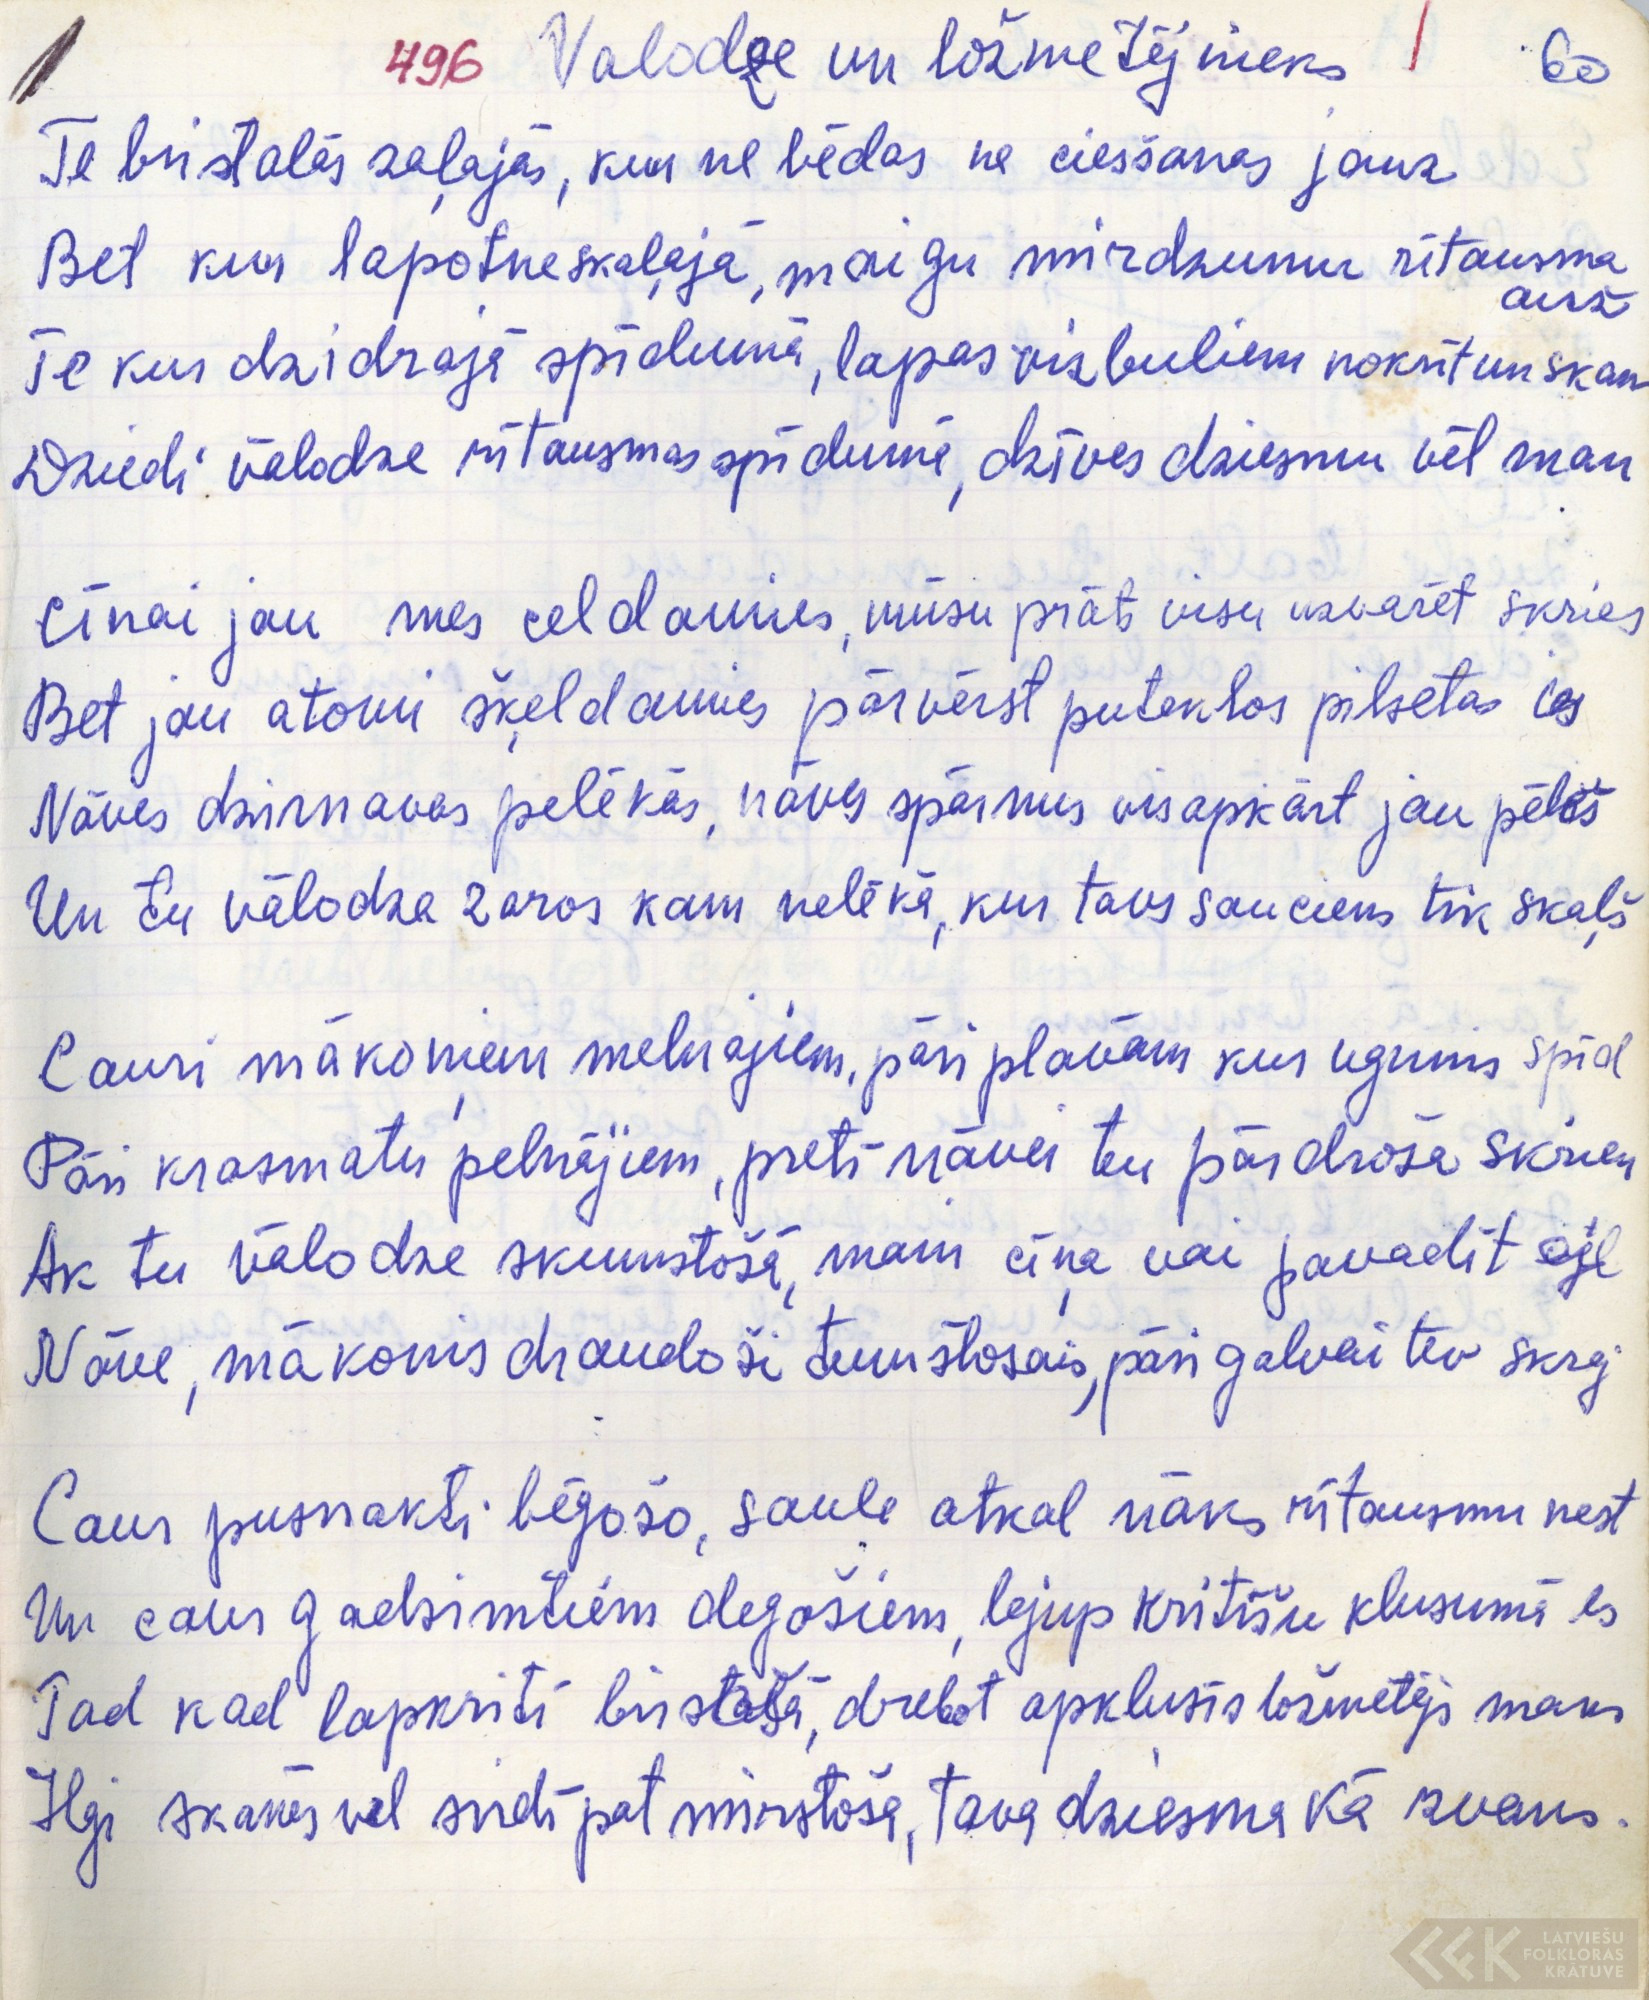 496 Valodze un ložmetējnieks 60
Te birstalās zaļajās, kur ne bēdas ne ciešanas jauz
Bet kur lapotne skaļajā, maigu mirdzumu rītausma
auž
Te kur dzidrajā spīdumā, lapas vizbuliem nokrīt un skan
Dziedi vālodze rītausmas spīdumā, dzīves dziesmu vēl man
Cīnai jau mes celdamies, mūsu prāts visu uzvarēt skries
Bet jau atomi šķeldamies pārvērst putekļos pilsētas ies
Nāves dzirnavas pelēkās, nāves spārnus visapkārt jau pēlš
Un tu vālodza zaros kam nelēkā, kur tavs sauciens tik skaļš
Cauri mākoņiem melnajiem, pāri pļavām kur uguns spīd
Pāri krasmatu pelnājiem, preti nāvei tu pārdroša skrien
Ak tu vālodze skumstošā, mani cīņa vai pavadīt
Nāve, mākonis draudoši tumstošais, pāri galvai tev skrej
Caur pusnakti bēgošo, saule atkal nāks rītausmu nest
Un caur gadsimtiem degošiem, lejup kritīšu klusumā es
Tad kad lapkritī birstošā, drebot apklusīs ložmetējs mans
Ilgi skanēs vel sirdī pat mirstošā, tava dziesma kā zvans.
LATVIEŠU
FOLKLORAS
KRĀTUVE